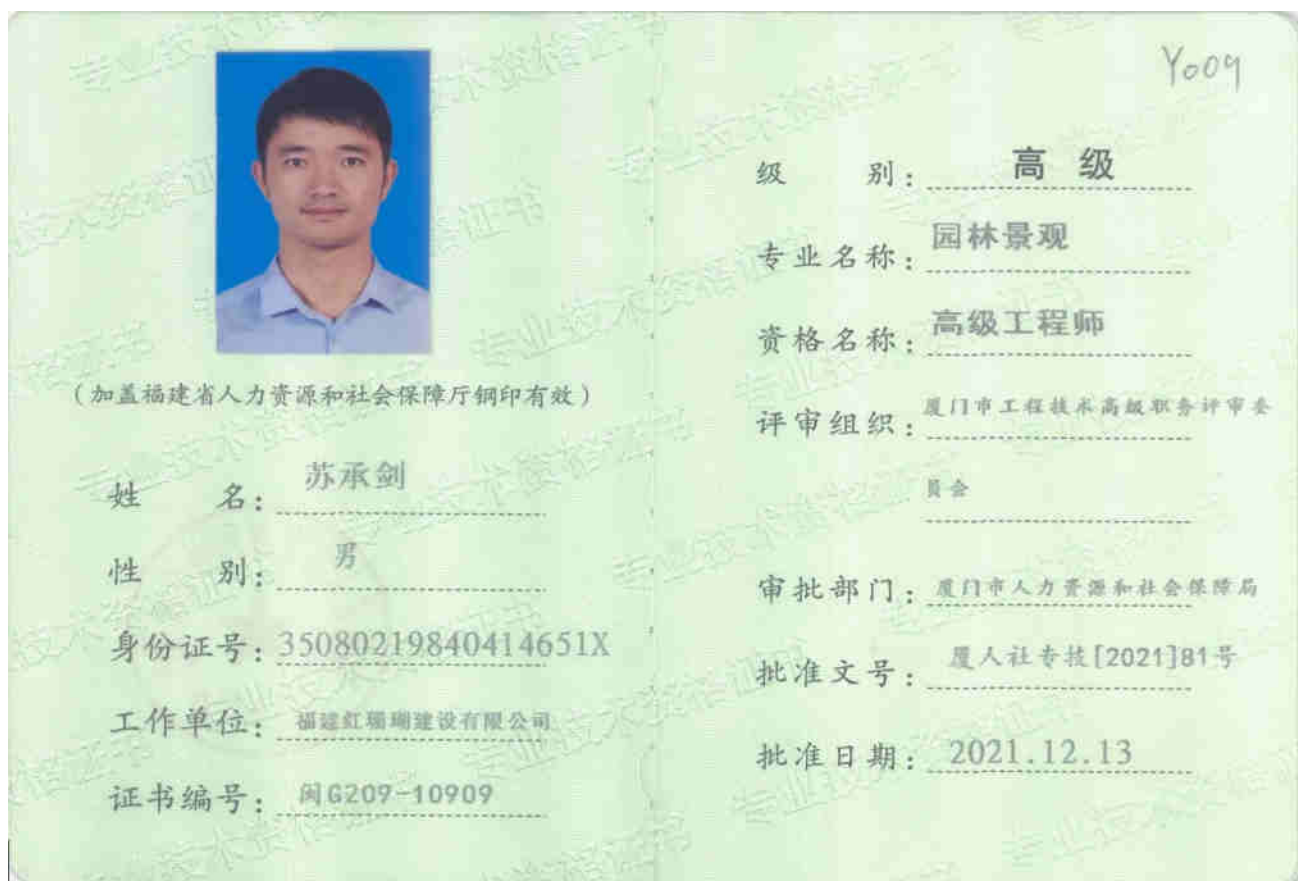 （加盖福建省人力资源和社会保障厅钢印有效）
姓 名：苏承剑
性 别：男
身份证号：35080219840414651X
工作单位：福建红珊瑚建设有限公司
证书编号：闽G209-10909
Y009
级 别：高 级
专业名称：园林景观
资格名称：高级工程师
评审组织：厦门市工程技术高级职务评审委
员会
审批部门：厦门市人力资源和社会保障局
批准文号：厦人社专技[2021]81号
批准日期：2021.12.13
专业技术资格证书